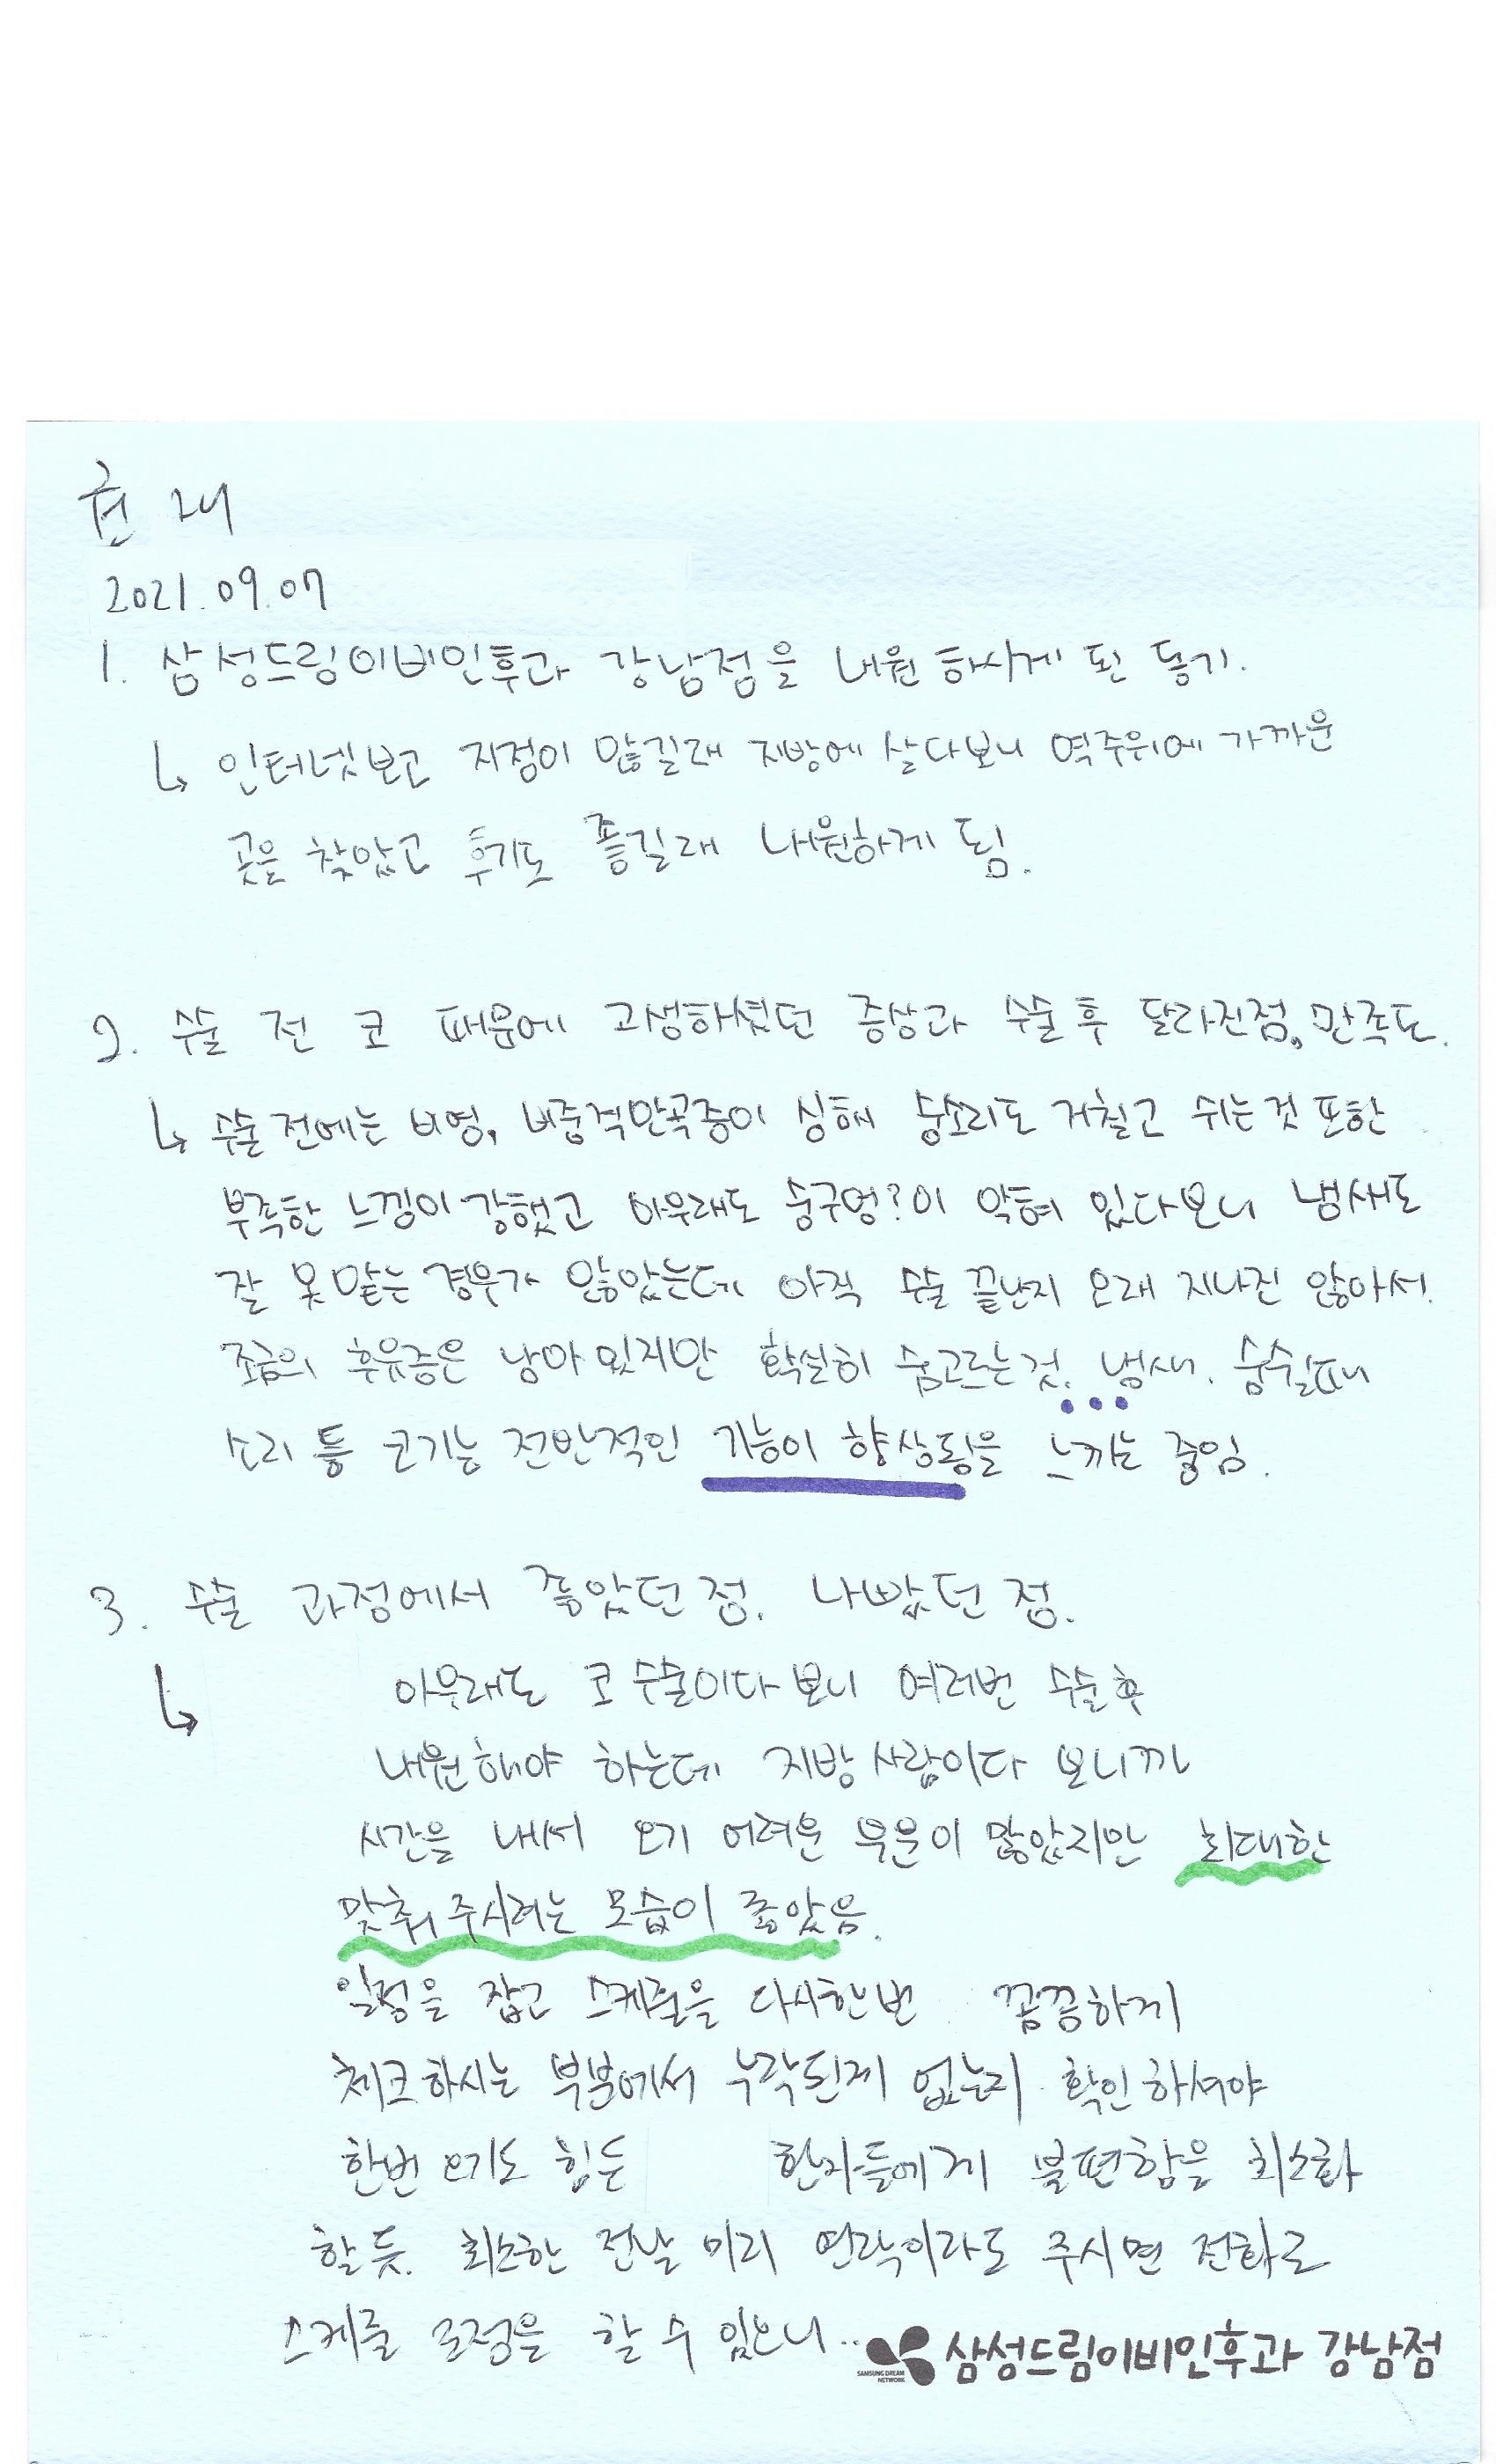 권 재
2021.09.07
1. 삼성드림이비인후과 강남점을 내원하시게 된 동기.
↳ 인터넷보고 지점이 많길래 지방에 살다보니 역주위에 가까운
곳을 찾았고 후기도 좋길래 내원하게 됨.
2. 수술 전 코 때문에 고생하셨던 증상과 수술 후 달라진점, 만족도.
↳ 수술 전에는 비염, 비중격만곡증이 심해 숨소리도 거칠고 쉬는것 또한
부족한 느낌이 강했고 아무래도 숨구멍?이 막혀 있다보니 냄새도
잘 못 맡는 경우가 많았는데 아직 수술 끝난지 오래 지나진 않아서.
조금의 후유증은 남아 있지만 확실히 숨고르는것. 냄새. 숨쉴때
소리 등 코기능 전반적인 기능이 향상됨을 느끼는 중임.
3. 수술 과정에서 좋았던 점. 나빴던 점.
↳ 아무래도 코 수술이다 보니 여러번 수술후
내원해야 하는데 지방 사람이다 보니까
시간을 내서 오기 어려운 부분이 많았지만 최대한
맞춰 주시려는 모습이 좋았음.
일정을 잡고 스케줄을 다시한번 꼼꼼하게
체크하시는 부분에서 누락된게 없는지 확인하셔야
한번 오기도 힘든 환자들에게 불편함을 최소화
할듯. 최소한 전날 미리 연락이라도 주시면 전화로
스케줄 조정을 할 수 있으니..
SAMSUNG DREAM NETWORK 삼성드림이비인후과 강남점